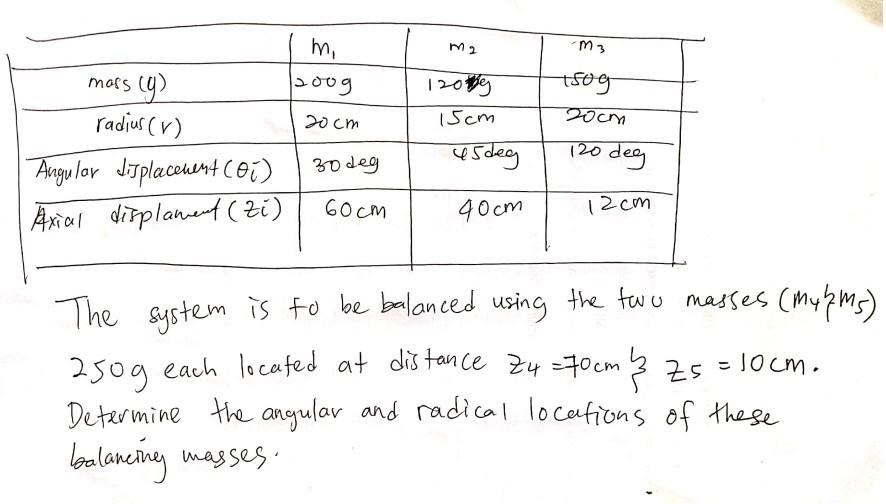 m₁ m₂ m₃
mass (g) 200g 120g 150g
radius (r) 20cm 15cm 20cm
Angular displacement (θi) 30 deg 45deg 120 deg
Axial displament (Zi) 60cm 40cm 12cm
The system is to be balanced using the two masses (m₄ & m₅)
250g each located at distance Z4 = 70cm & Z5 = 10cm.
Determine the angular and radical locations of these
balancing masses.